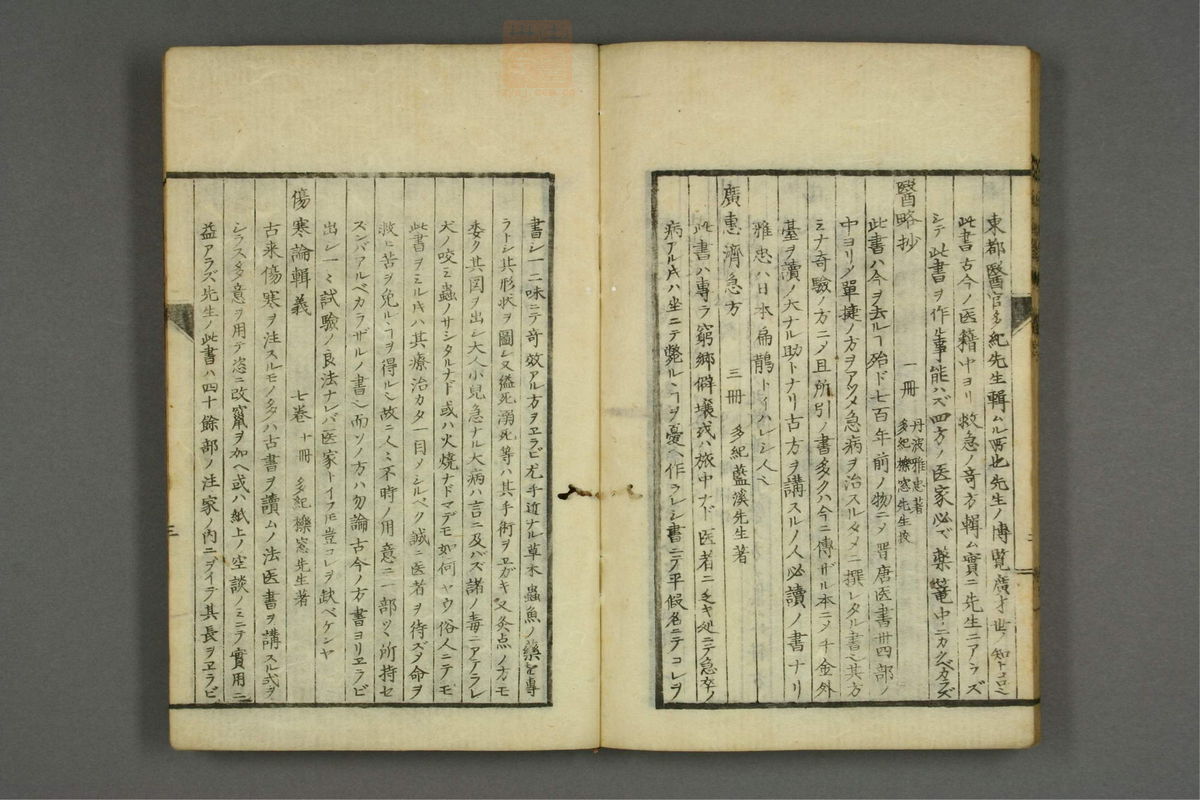 東都醫官多紀先生輯ムル所也先生ノ博覽廣才世ノ知トコロ
此書古今ノ医籍中ヨリ救急ノ奇方輯ム實ニ先生ニアラズ
シテ此書ヲ作ル事能ハズ四方ノ医家必ズ藥篭中ニカクベカラズ
醫略抄 一冊 丹波雅忠著 多紀櫟窓先生挍
此書ハ今ヲ去ルヿ殆ド七百年前ノ物ニノ晋唐医書卅四部ノ
中ヨリノ單捷ノ方ヲアツメ急病ヲ治スルタメニ撰レタル書ニ其方
ミナ奇驗ノ方ニノ且所引ノ書多クハ今ニ傳ザル本ニノ千金外
臺ヲ讀ノ大ナル助トナリ古方ヲ講スルノ人必讀ノ書ナリ
雅忠ハ日本扁鵲トイハレシ人
廣惠濟急方 三冊 多紀藍溪先生著
此書ハ專ラ窮鄉僻壤或ハ旅中ナド医者ニ乏キ処ニテ急卒ノ
病アル片ハ坐ニテ斃ルヽヿヲ憂ヘ作ラレシ書ニテ平假名ニテコレヲ
書シ一二味ニテ奇效アル方ヲヱラビ尤手近ナル草木蟲魚ノ藥を專
ラトシ其形状ヲ圖シ又縊死溺死等ハ其手術ヲヱガキ又灸点ノ方モ
委ク其図ヲ出シ大人小兒急ナル大病ハ言ニ及バズ諸ノ毒ニアテラレ
犬ノ咬ミ蟲ノサシタルナド或ハ火燒ナドマデモ如何ヤウ俗人ニテモ
此書ヲミル片ハ其療治カタ一目ノシルベク誠ニ医者ヲ待ズノ命ヲ
救ヒ苦ヲ免ルヽヿヲ得ルシ故ニ人ミ不時ノ用意ニ一部ツヽ所持セ
ズンバアルベカラザルノ書ニ而ソノ方ハ勿論古今ノ方書ヨリヱラビ
出シ一ミ試驗ノ良法ナレバ医家トイフ𪜈豈コレヲ缺ベケンヤ
傷寒論輯義 七卷 十冊 多紀櫟窓先生著
古来傷寒ヲ注スルモノ多クハ古書ヲ讀ムノ法医書ヲ講スル式ヲ
シラス多意ヲ用テ恣ニ改竄ヲ加ヘ或ハ紙上ノ空談ノミニテ實用ニ
益アラズ先生ノ此書ハ四十餘部ノ注家ノ内ニツイテ其長ヲヱラビ
三